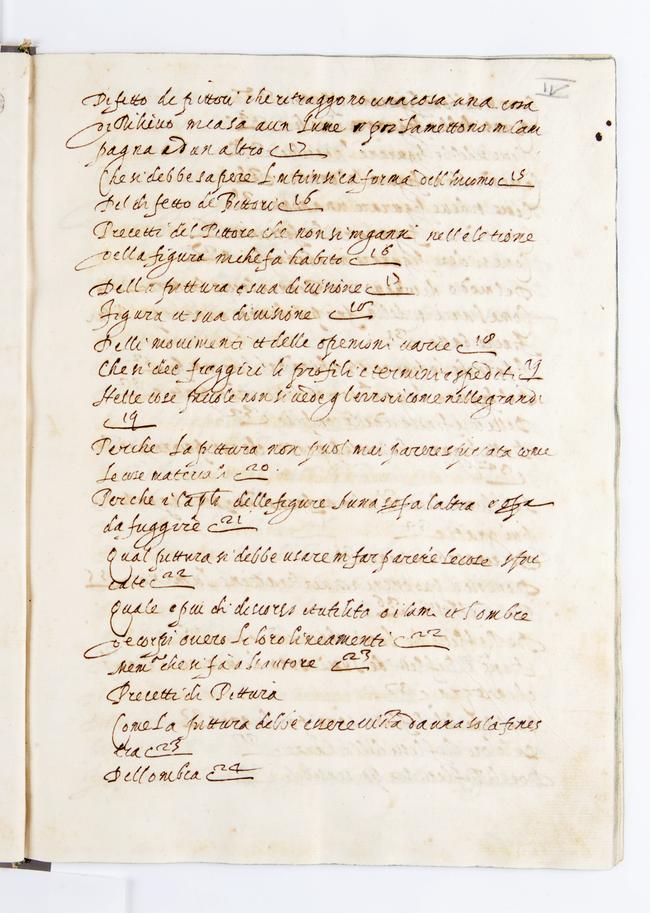 IV
Difetto de pittori che ritraggono una cosa una cosa
di Rilievo in casa a un lume e poi la mettono in cam
pagna ad un altro c 17
Che si debbe sapere l intrinsica forma dell huomo c 15
Del difetto de Pittori c 16
Precetti del Pittore che non s inganni nell eletione
della figura in che fa habito c 16
Della pittura e sua divisione c 17
figura et sua divisione c 18
Delli movimenti et delle openioni varie c 18
Che si dee fuggire li profili e termini espediti c 19
Nelle cose piccole non si vede gl errori come nelle grandi
c 19
Perche la pittura non puol mai parere spicata come
le cose naturali c 20
Perche i capli delle figure l una sopa l altra e opa
da fuggire c 21
Qual pittura si debbe usare in far parere le cose spic
cate c 22
Quale e piu di discorso et utilita o i lumi et l ombre
de corpi overo li loro lineamenti c 22
Mem. che si fa a l autore c 23
Precetti di Pittura
Come La pittura debbe essere vista da una sola fenes
tra c 23
Dell ombra c 24